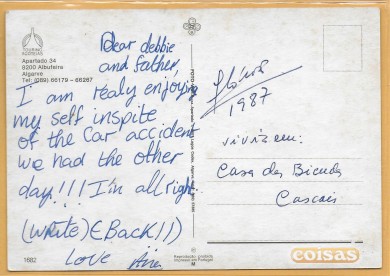 TOURING
AÇOREIAS
Apartado 34
8200 Albufeira
Algarve
Tel: (089) 66179 - 66267
Dear debbie
and father,
I am realy enjoying
my self inspite
of the Car accident
we had the other
day!!! I'm all right.
(write) (Back!!)
Love
1682
1987
vivi em:
Casa das Bicudas
Cascais
Impresso em Portugal
M
coisas